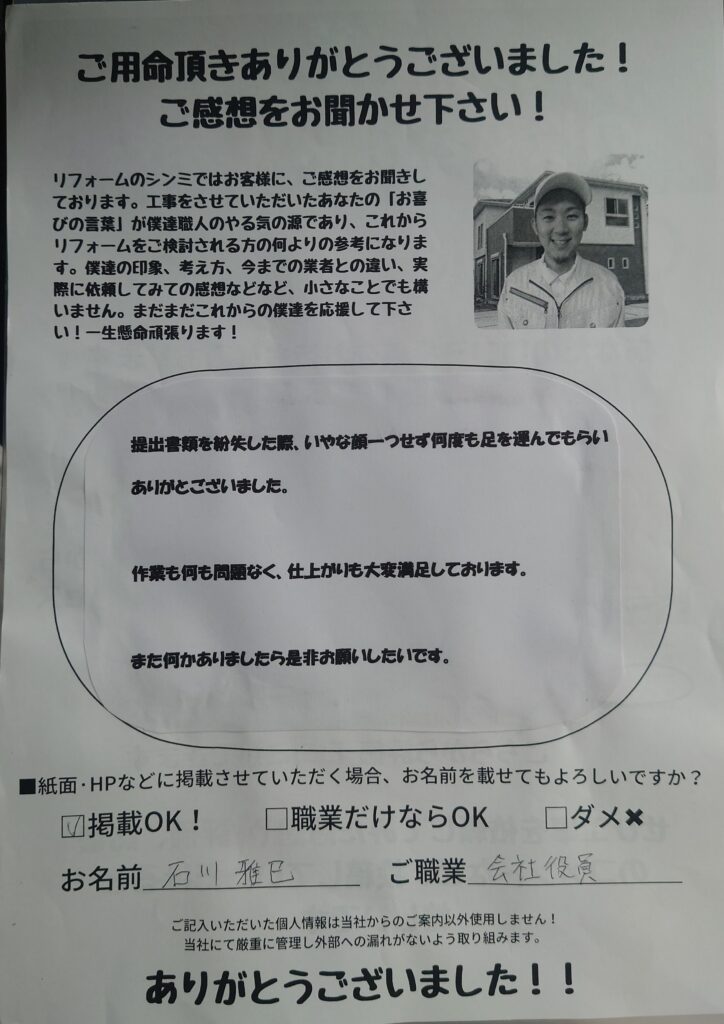 ご用命頂きありがとうございました！
ご感想をお聞かせ下さい！
リフォームのシンミではお客様に、ご感想をお聞きし
ております。工事をさせていただいたあなたの「お喜
びの言葉」が僕達職人のやる気の源であり、これから
リフォームをご検討される方の何よりの参考になりま
す。僕達の印象、考え方、今までの業者との違い、実
際に依頼してみての感想などなど、小さなことでも構
いません。まだまだこれからの僕達を応援して下さ
い！一生懸命頑張ります！
提出書類を紛失した際、いやな顔一つせず何度も足を運んでもらい
ありがとございました。
作業も何も問題なく、仕上がりも大変満足しております。
また何かありましたら是非お願いしたいです。
■紙面・HPなどに掲載させていただく場合、お名前を載せてもよろしいですか？
☑掲載OK！ □職業だけならOK □ダメ✖
お名前 石川 雅巳 ご職業 会社役員
ご記入いただいた個人情報は当社からのご案内以外使用しません！
当社にて厳重に管理し外部への漏れがないよう取り組みます。
ありがとうございました！！